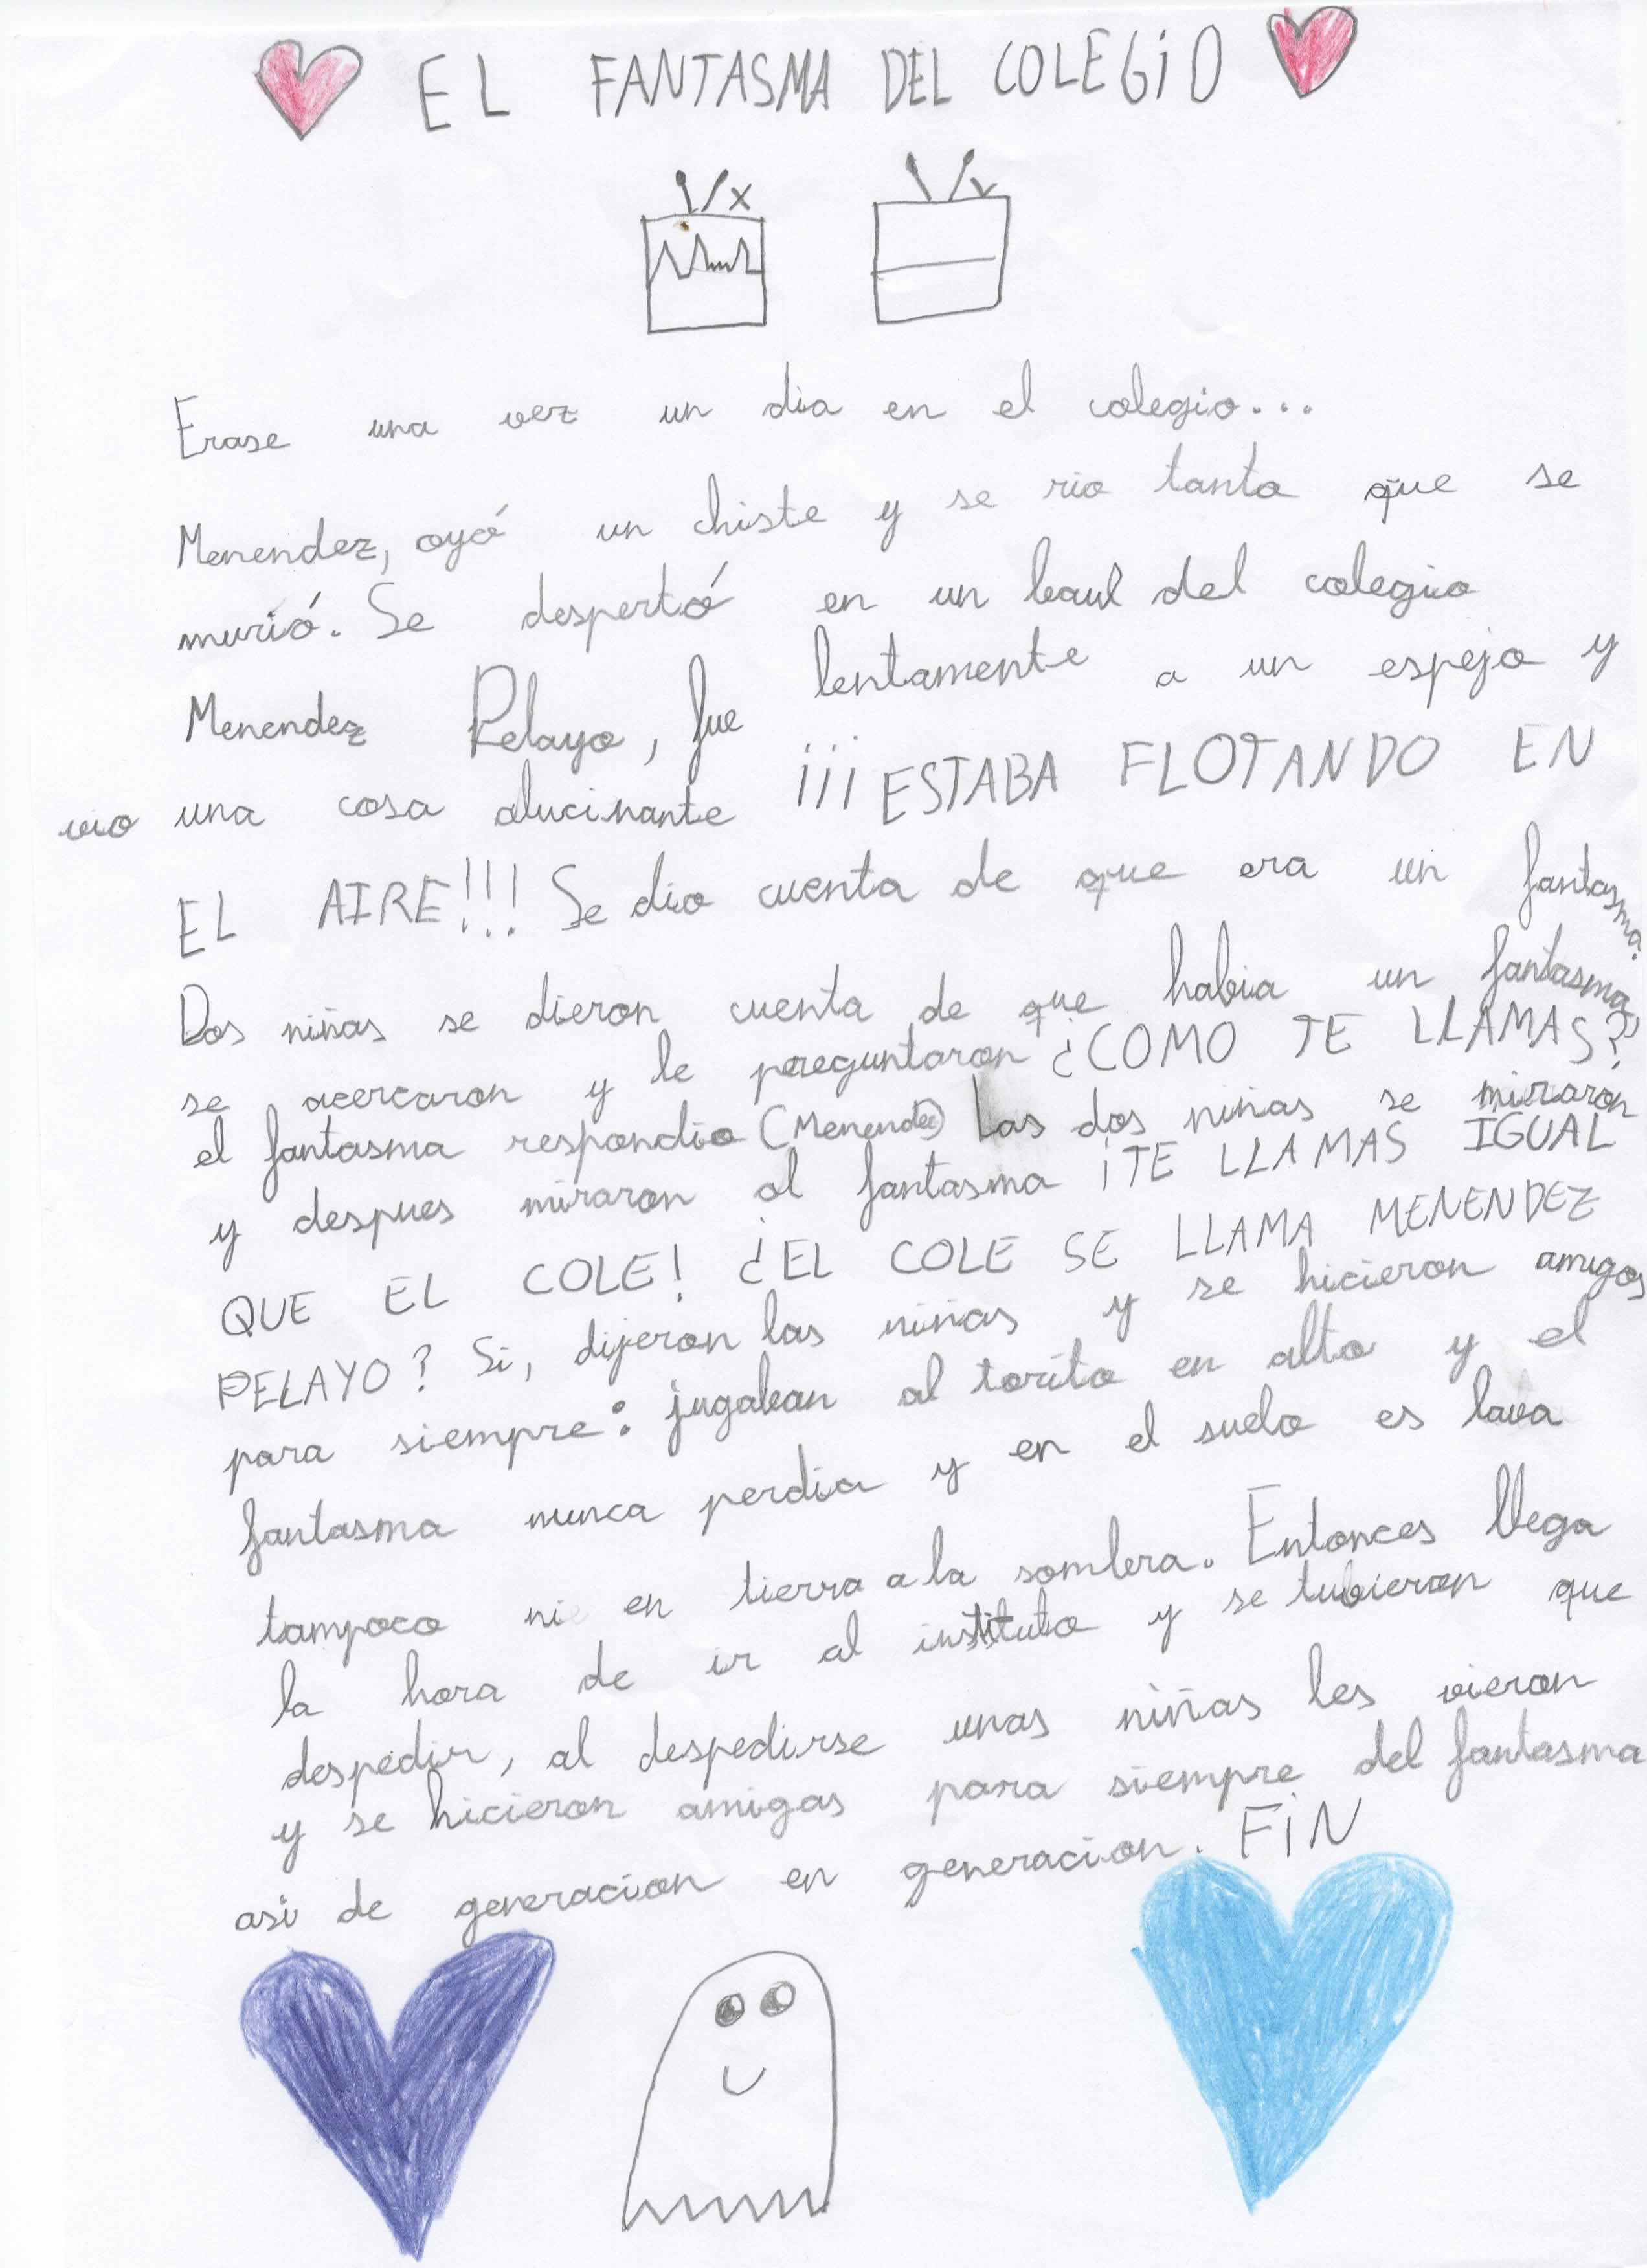 EL FANTASMA DEL COLEGiO
Erase una vez un dia en el colegio...
Menendez, oyó un chiste y se rio tanto que se
murió. Se despertó en un baul del colegio
Menendez Pelayo, fue lentamente a un espejo y
vio una cosa alucinante ¡¡¡ESTABA FLOTANDO EN
EL AIRE!!! Se dio cuenta de que era un fantasma.
Dos niñas se dieron cuenta de que habia un fantasma,
se acercaron y le preguntaron ¿COMO TE LLAMAS?
el fantasma respondio (Menendez) Las dos niñas se miraron
y despues miraron al fantasma ¡TE LLAMAS IGUAL
QUE EL COLE! ¿EL COLE SE LLAMA MENENDEZ
PELAYO? Si, dijeron las niñas y se hicieron amigos
para siempre: jugaban al torito en alto y el
fantasma nunca perdia y en el suelo es lava
tampoco ni en tierra a la sombra. Entonces llega
la hora de ir al instituto y se tubieron que
despedir, al despedirse unas niñas les vieron
y se hicieron amigas para siempre del fantasma
asi de generacion en generacion. FiN